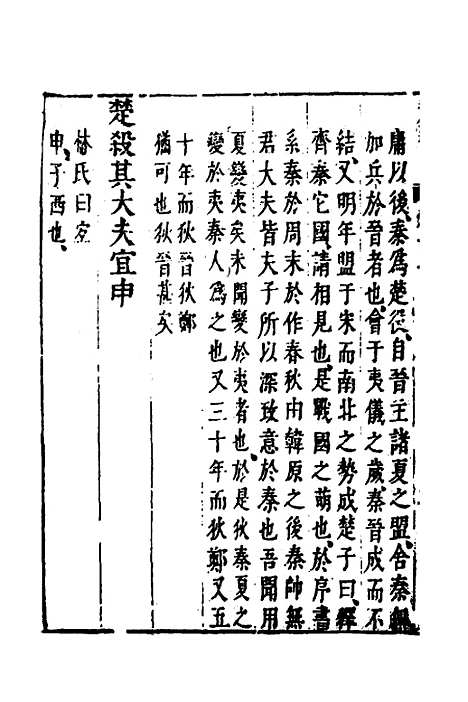 庸以後秦爲楚役自晉主諸夏之盟舍秦無
加兵於晉者也會于夷儀之歲秦晉成而不
結又明年盟于宋而南北之勢成楚子曰釋
齊秦它國請相見也是戰國之萌也於序書
系秦於周末於作春秋由韓原之後秦帥無
君大夫皆夫子所以深致意於秦也吾聞用
夏變夷矣未聞變於夷者也於是狄秦夏之
變於夷秦人爲之也又三十年而狄鄭又五
十年而狄晉狄鄭
猶可也狄晉甚矣
楚殺其大夫宜申
林氏曰宜
申子西也